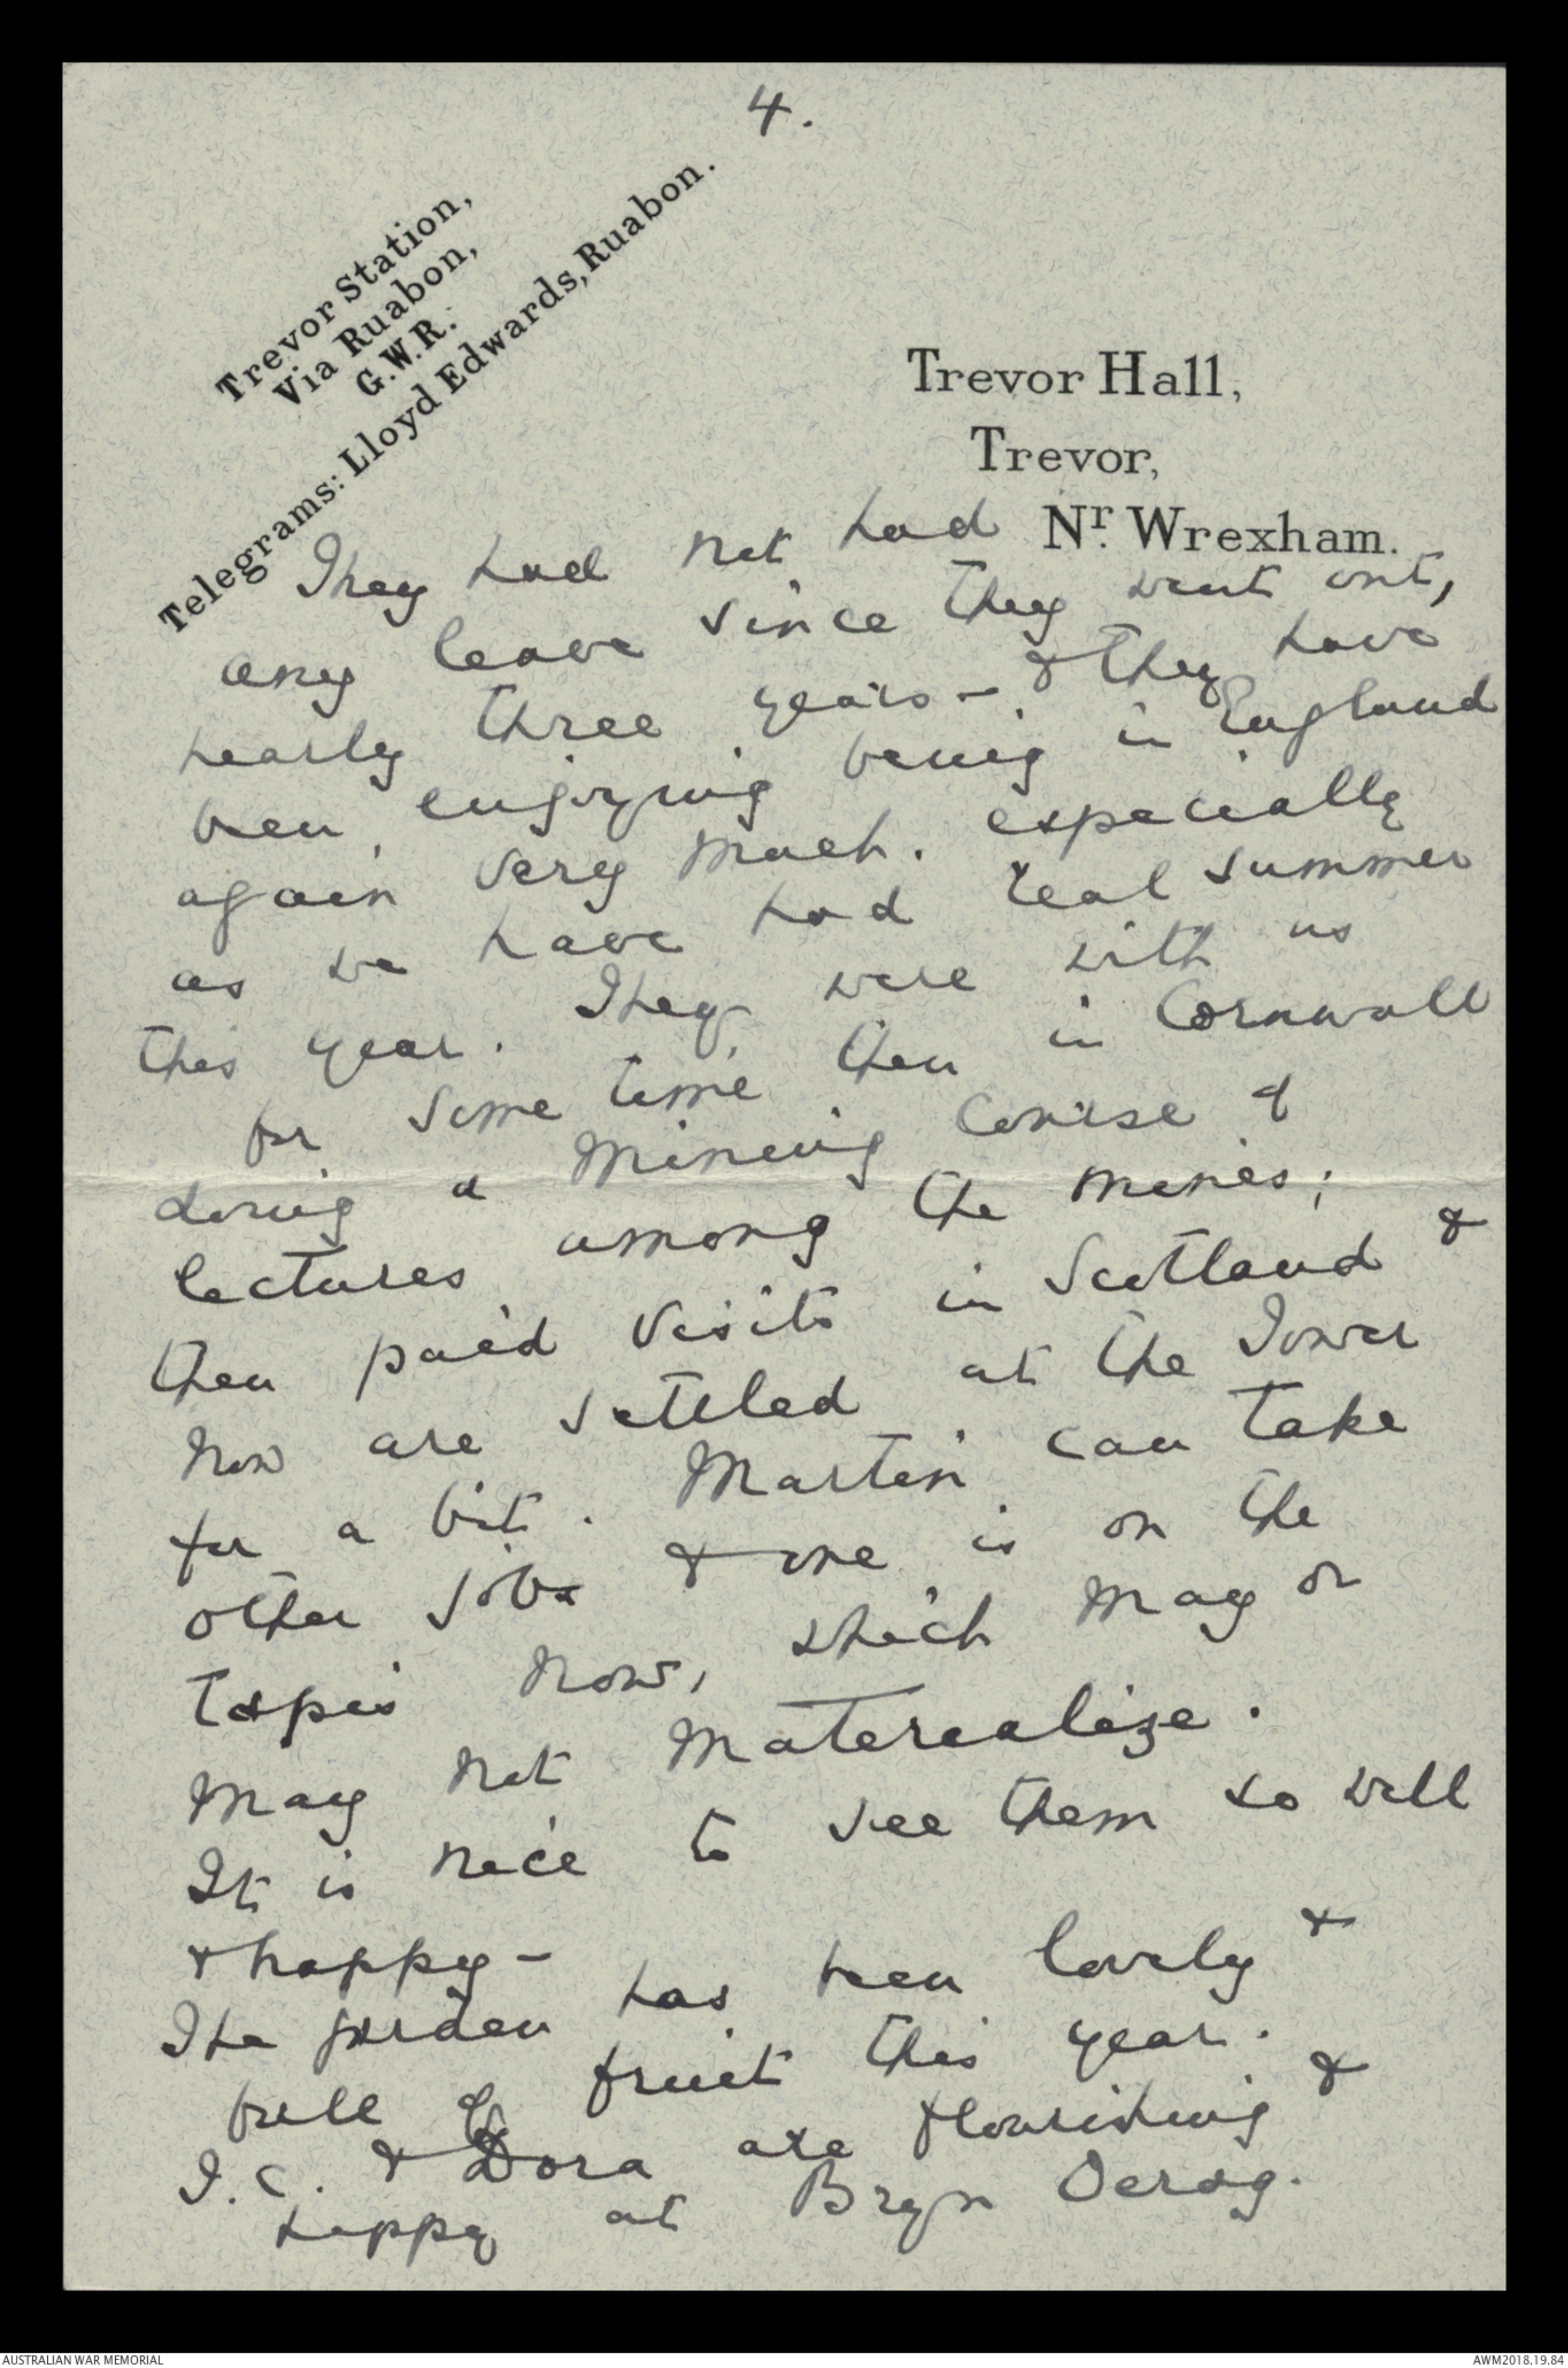 4.
Trevor Station,
Via Ruabon,
G.W.R.
Telegrams: Lloyd Edwards, Ruabon.
Trevor Hall,
Trevor,
Nr. Wrexham.
They had not had
any leave since they went out,
nearly three years - & they have
been enjoying being in England
again very much. especially
as we have had real summer
this year. They were with us
for some time then in Cornwall
doing a Mining Course &
lectures among the mines;
then paid visits in Scotland &
now are settled at the Tower
for a bit. Martin can take
other jobs & one is on the
tapis now, which may or
may not materealize.
It is nice to see them so well
& happy -
The garden has been lovely &
full of fruit this year.
J.C. & Dora are flourishing &
happy at Bryn Oerog.
AUSTRALIAN WAR MEMORIAL
AWM2018.19.84